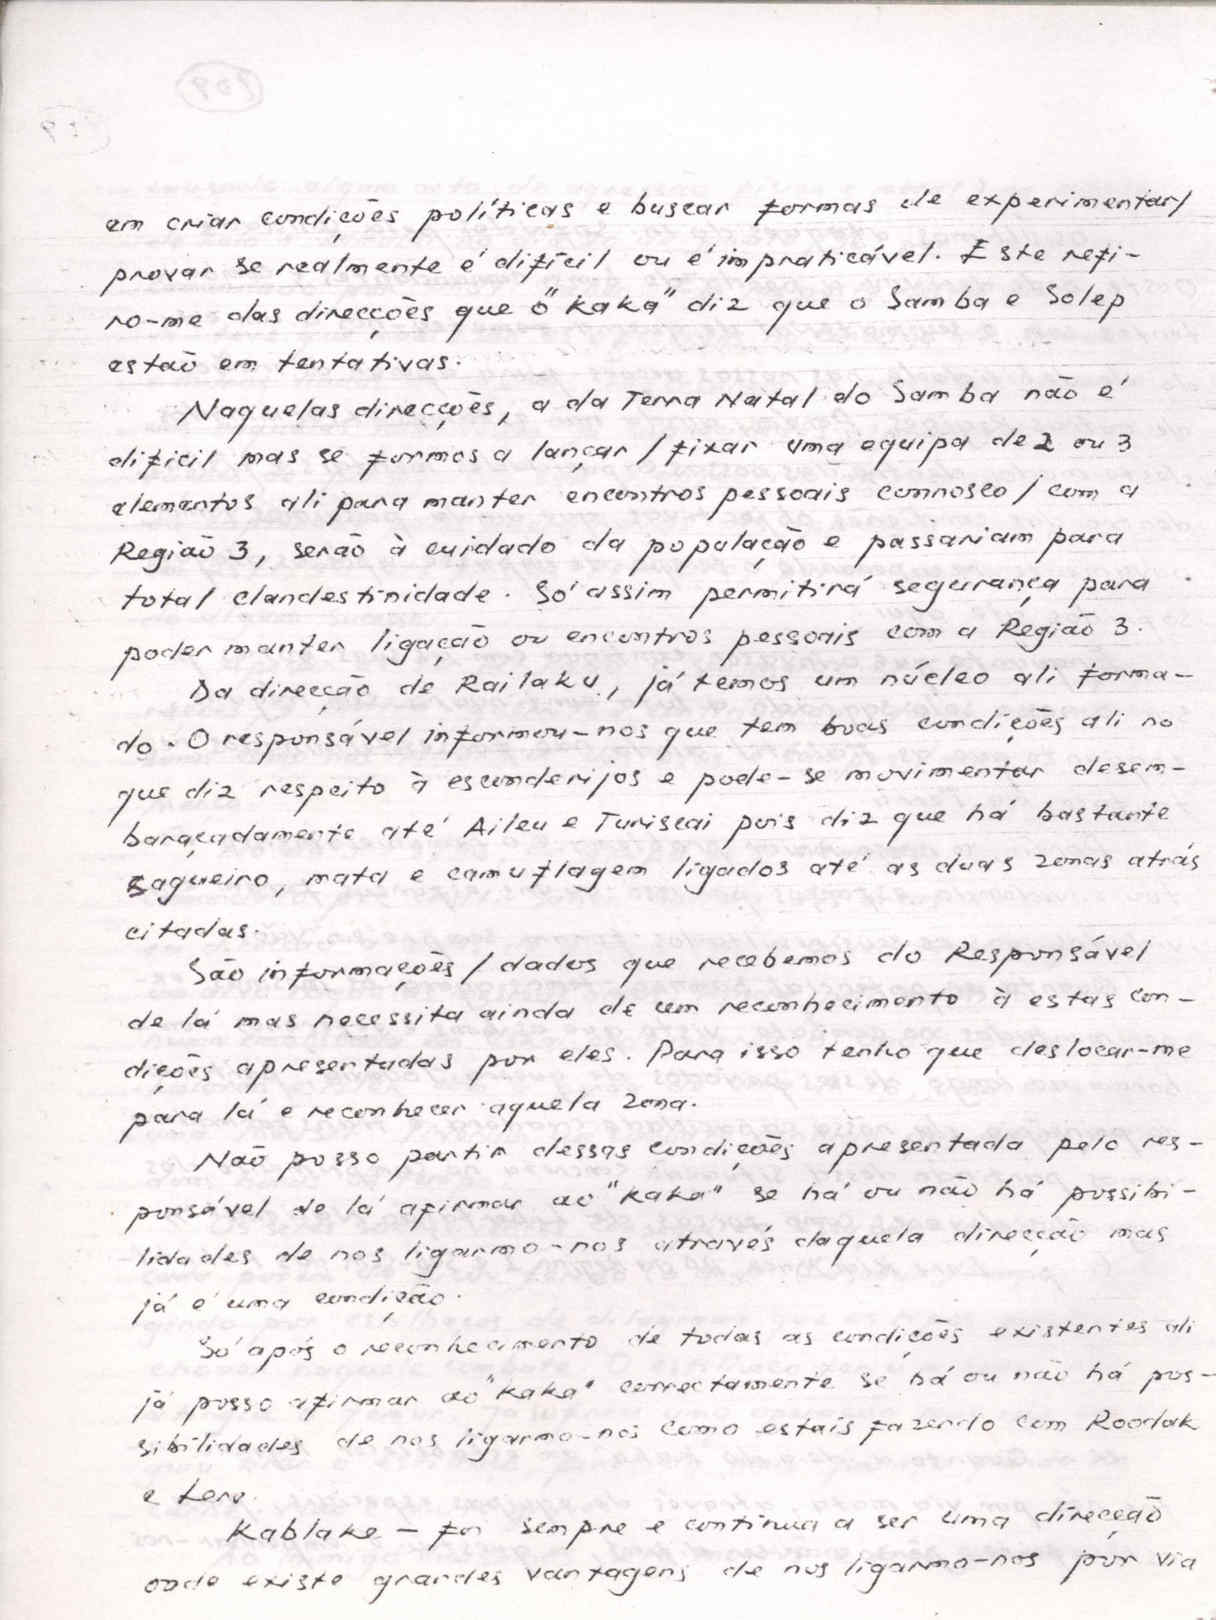 em criar condições políticas e buscar formas de experimentar/
provar se realmente é difícil ou é impraticável. Este refi-
ro-me das direcções que o "Kaka" diz que o Samba e Solep
estão em tentativas.
Naquelas direcções, a da Terra Natal do Samba não é
difícil mas se formos a lançar/fixar uma equipa de 2 ou 3
elementos ali para manter encontros pessoais connosco/com a
Região 3, serão à cuidado da população e passariam para
total clandestinidade. Só assim permitirá segurança para
poder manter ligação ou encontros pessoais com a Região 3.
Da direcção de Railaku, já temos um núcleo ali forma-
do. O responsável informou-nos que tem boas condições ali no
que diz respeito à esconderijos e pode-se movimentar desem-
baraçadamente até Aileu e Turiscai pois diz que há bastante
sagueiro, mata e camuflagem ligados até as duas zonas atrás
citadas.
São informações/dados que recebemos do Responsável
de lá mas necessita ainda de um reconhecimento à estas con-
dições apresentadas por eles. Para isso tenho que deslocar-me
para lá e reconhecer aquela zona.
Não posso partir dessas condições apresentada pelo res-
ponsável de lá afirmar ao "Kaka" se há ou não há possibi-
lidades de nos ligarmo-nos através daquela direcção mas
já é uma condição.
Só após o reconhecimento de todas as condições existentes ali
já posso afirmar ao "Kaka" correctamente se há ou não há pos-
sibilidades de nos ligarmo-nos como estais fazendo com Roodak
e
Kablake - foi sempre e continua a ser uma direcção
onde existe grandes vantagens de nos ligarmo-nos por via